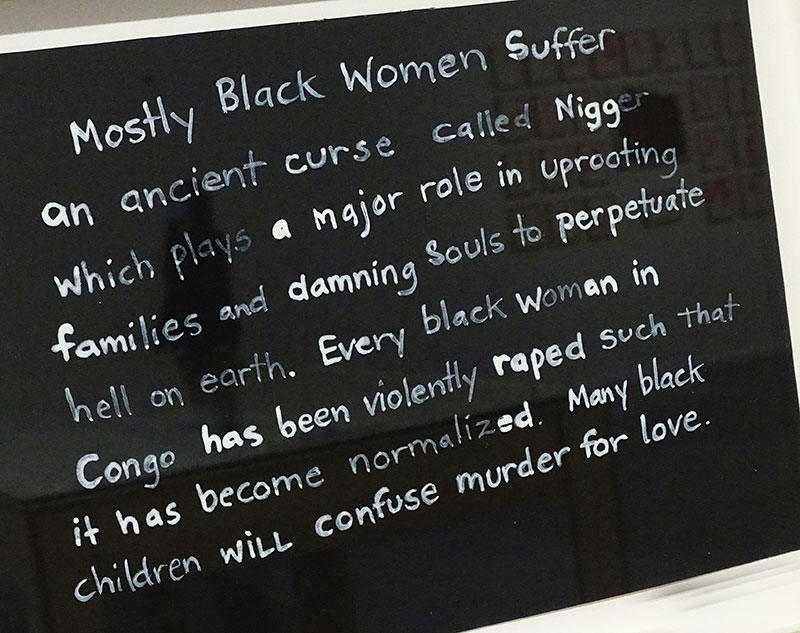 Mostly Black Women Suffer
an ancient curse called Nigger
which plays a major role in uprooting
families and damning souls to perpetuate
hell on earth. Every black woman in
Congo has been violently raped such that
it has become normalized. Many black
children will confuse murder for love.